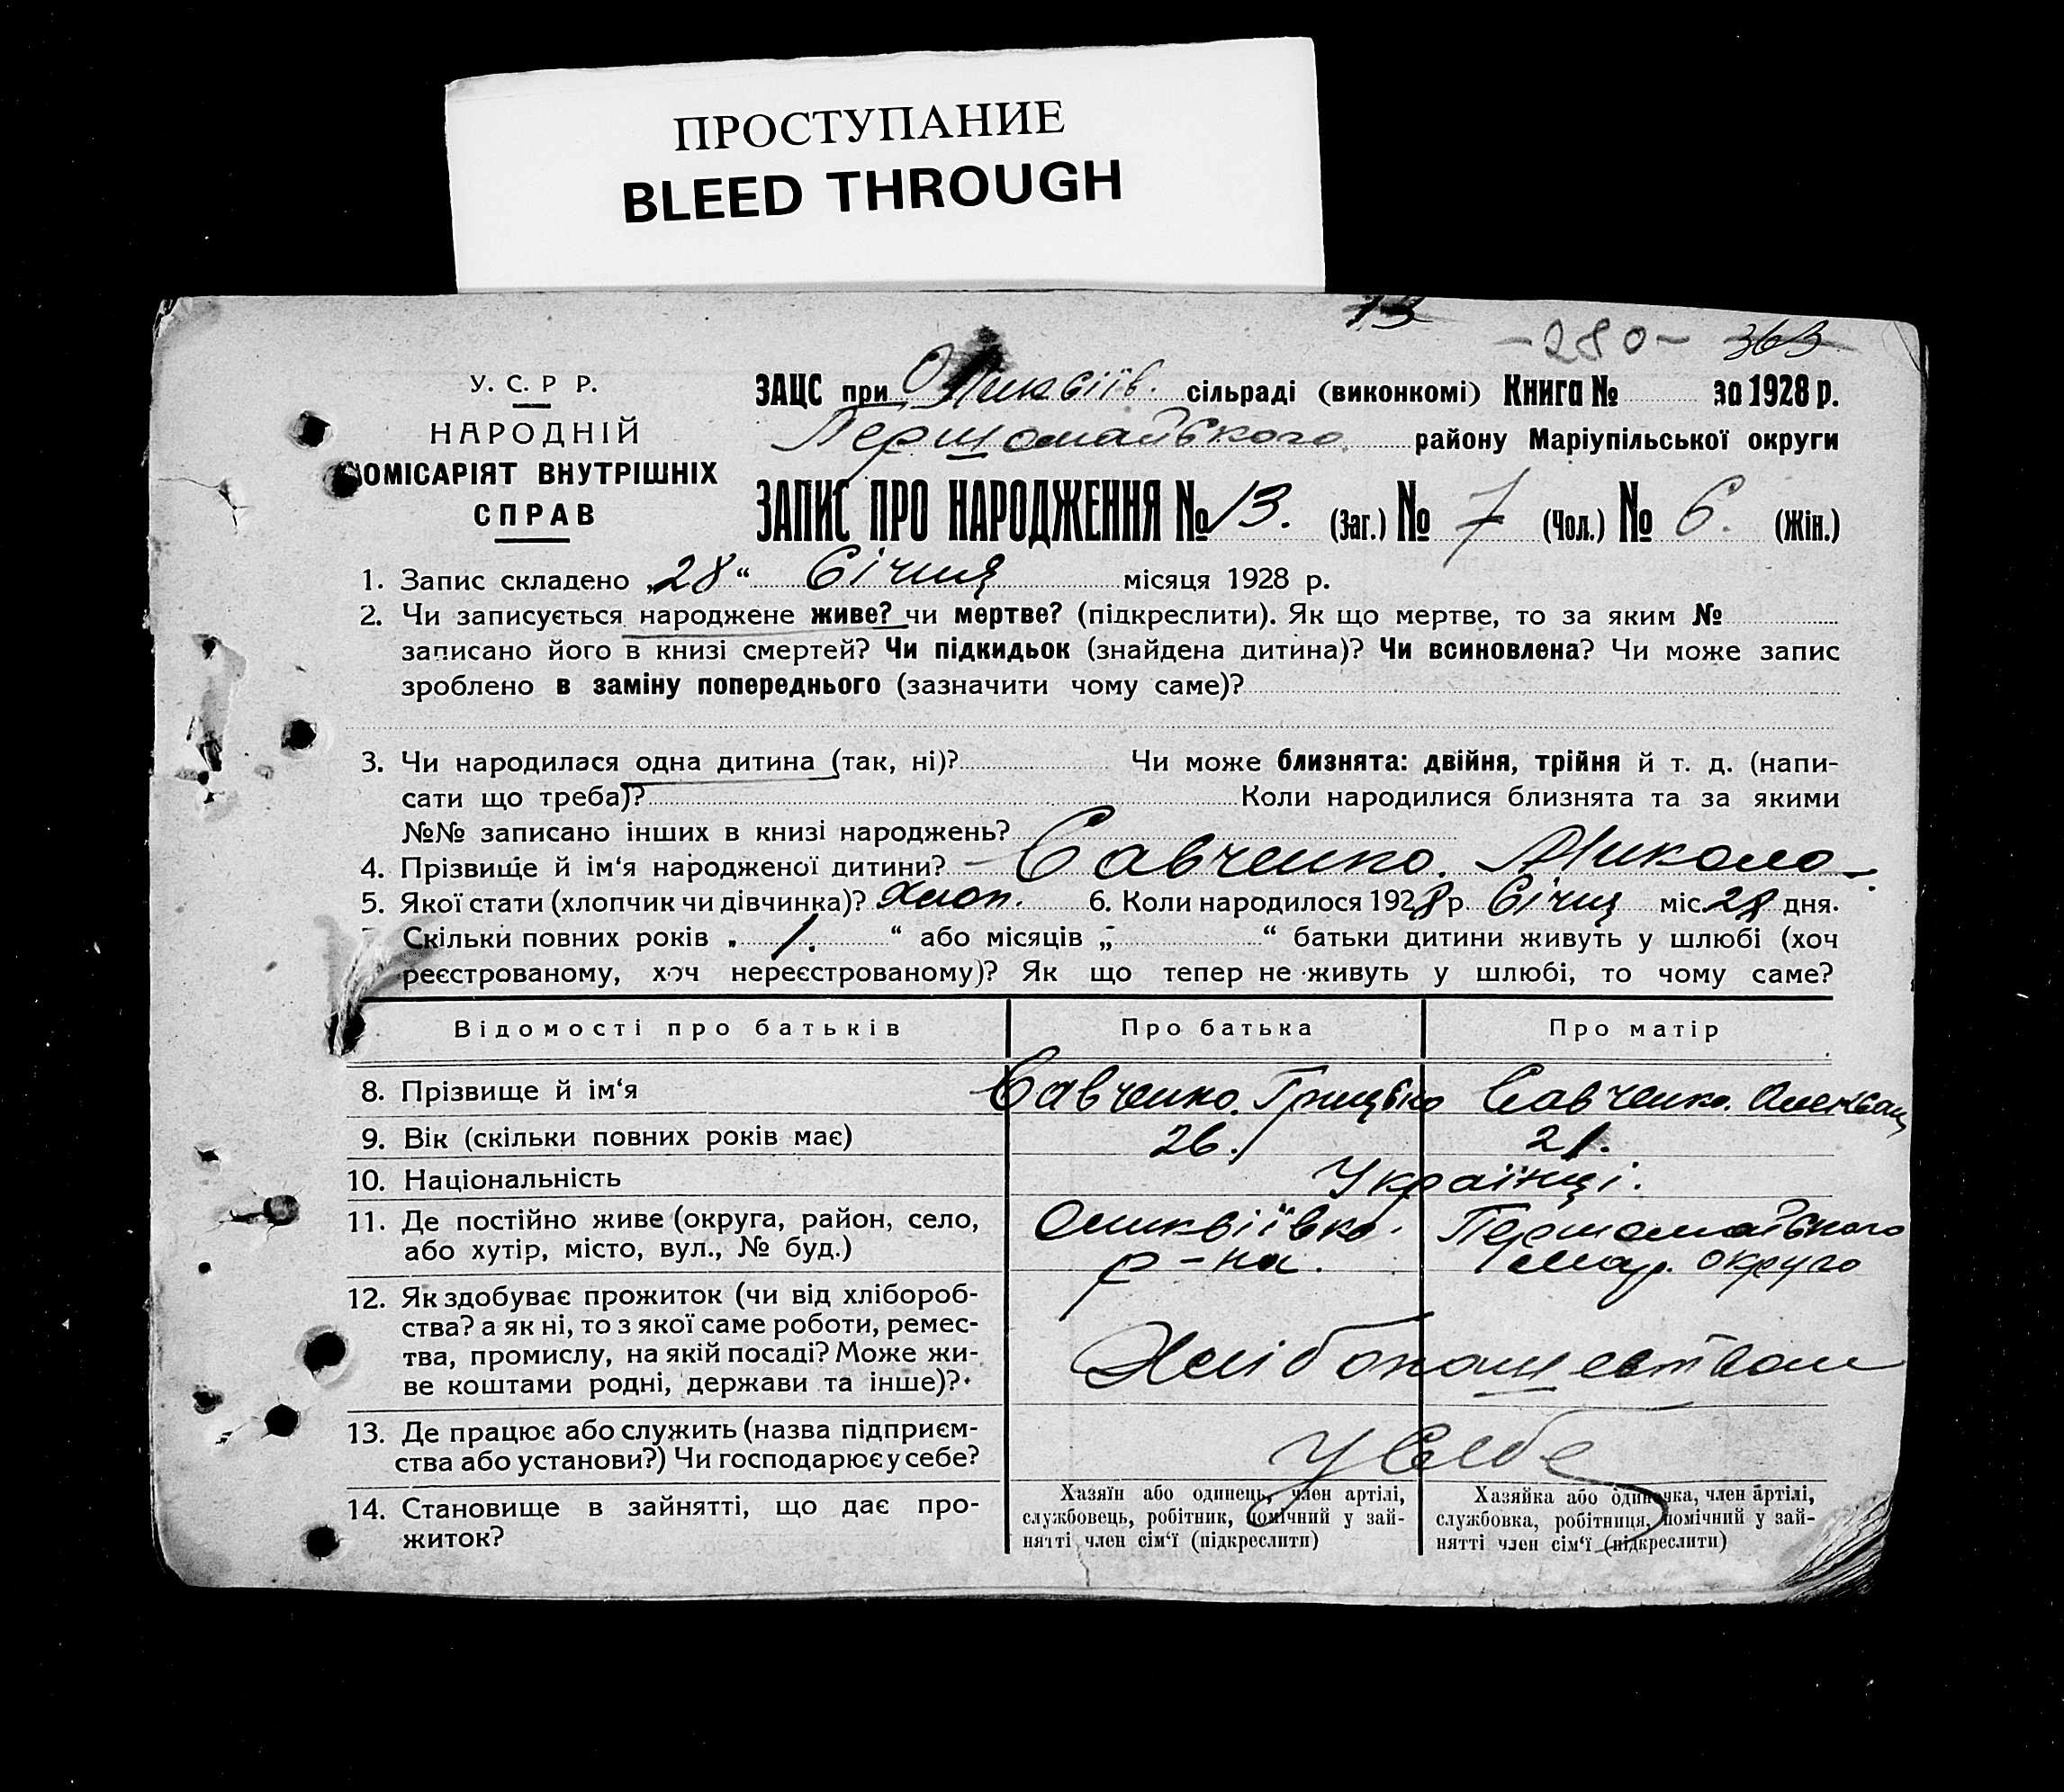 ПРОСТУПАНИЕ
BLEED THROUGH
13
-280- 363
У. С. Р Р.
НАРОДНІЙ
КОМІСАРІЯТ ВНУТРІШНІХ
СПРАВ
ЗАЦС при сільраді (виконкомі) Книга № за 1928 р.
Першомайського району Маріупільської округи
ЗАПИС ПРО НАРОДЖЕННЯ № 13. (Заг.) № 7 (Чол.) № 6. (Жін.)
1. Запис складено „28“ Січня місяця 1928 р.
2. Чи записується народжене живе? чи мертве? (підкреслити). Як що мертве, то за яким №
записано його в книзі смертей? Чи підкидьок (знайдена дитина)? Чи всиновлена? Чи може запис
зроблено в заміну попереднього (зазначити чому саме)?
3. Чи народилася одна дитина (так, ні)? Чи може близнята: двійня, трійня й т. д. (напи-
сати що треба)? Коли народилися близнята та за якими
№№ записано інших в книзі народжень?
4. Прізвище й ім‘я народженої дитини? Савченко. Микола
5. Якої стати (хлопчик чи дівчинка)? Хлоп. 6. Коли народилося 1928 р. Січня міс. 28 дня.
Скільки повних років „ 1. “ або місяців „ - “ батьки дитини живуть у шлюбі (хоч
реєстрованому, хоч нереєстрованому)? Як що тепер не живуть у шлюбі, то чому саме?
Відомості про батьків Про батька Про матір
8. Прізвище й ім‘я Савченко. Грицько Савченко. Олександ
9. Вік (скільки повних років має) 26. 21.
10. Національність Українці.
11. Де постійно живе (округа, район, село, Першомайського
або хутір, місто, вул., № буд.) р-на. округа
12. Як здобуває прожиток (чи від хлібороб-
ства? а як ні, то з якої саме роботи, ремес-
тва, промислу, на якій посаді? Може жи- Хлібопашеством
ве коштами родні, держави та інше)?
13. Де працює або служить (назва підприєм-
ства або установи?) Чи господарює у себе? У себе
14. Становище в зайнятті, що дає про-
житок?
Хазяїн або одинець, член артілі,
службовець, робітник, помічний у зай-
нятті член сім‘ї (підкреслити)
Хазяйка або одиночка, член артілі,
службовка, робітниця, помічний у зай-
нятті член сім‘ї (підкреслити)